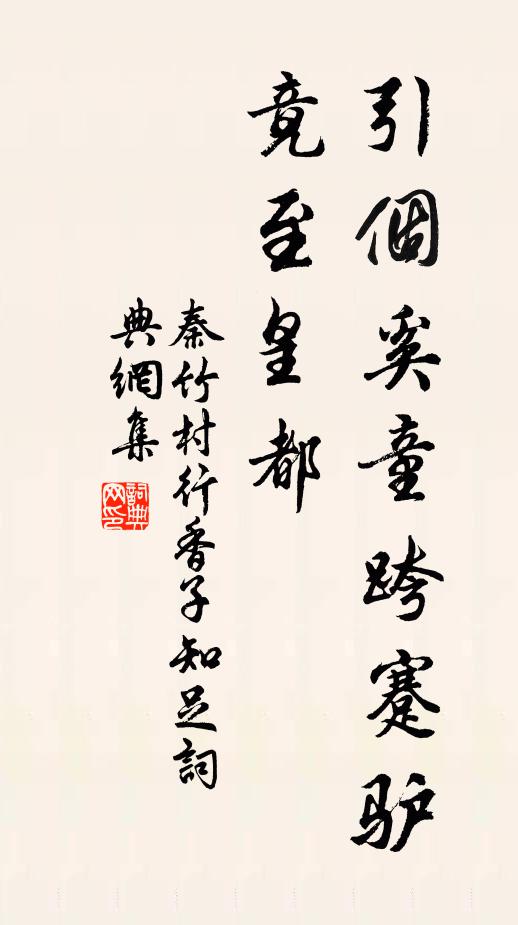 引個奚童跨蹇驴
竟至皇都
秦竹村行香子知足詞
典網集
詞典
网印